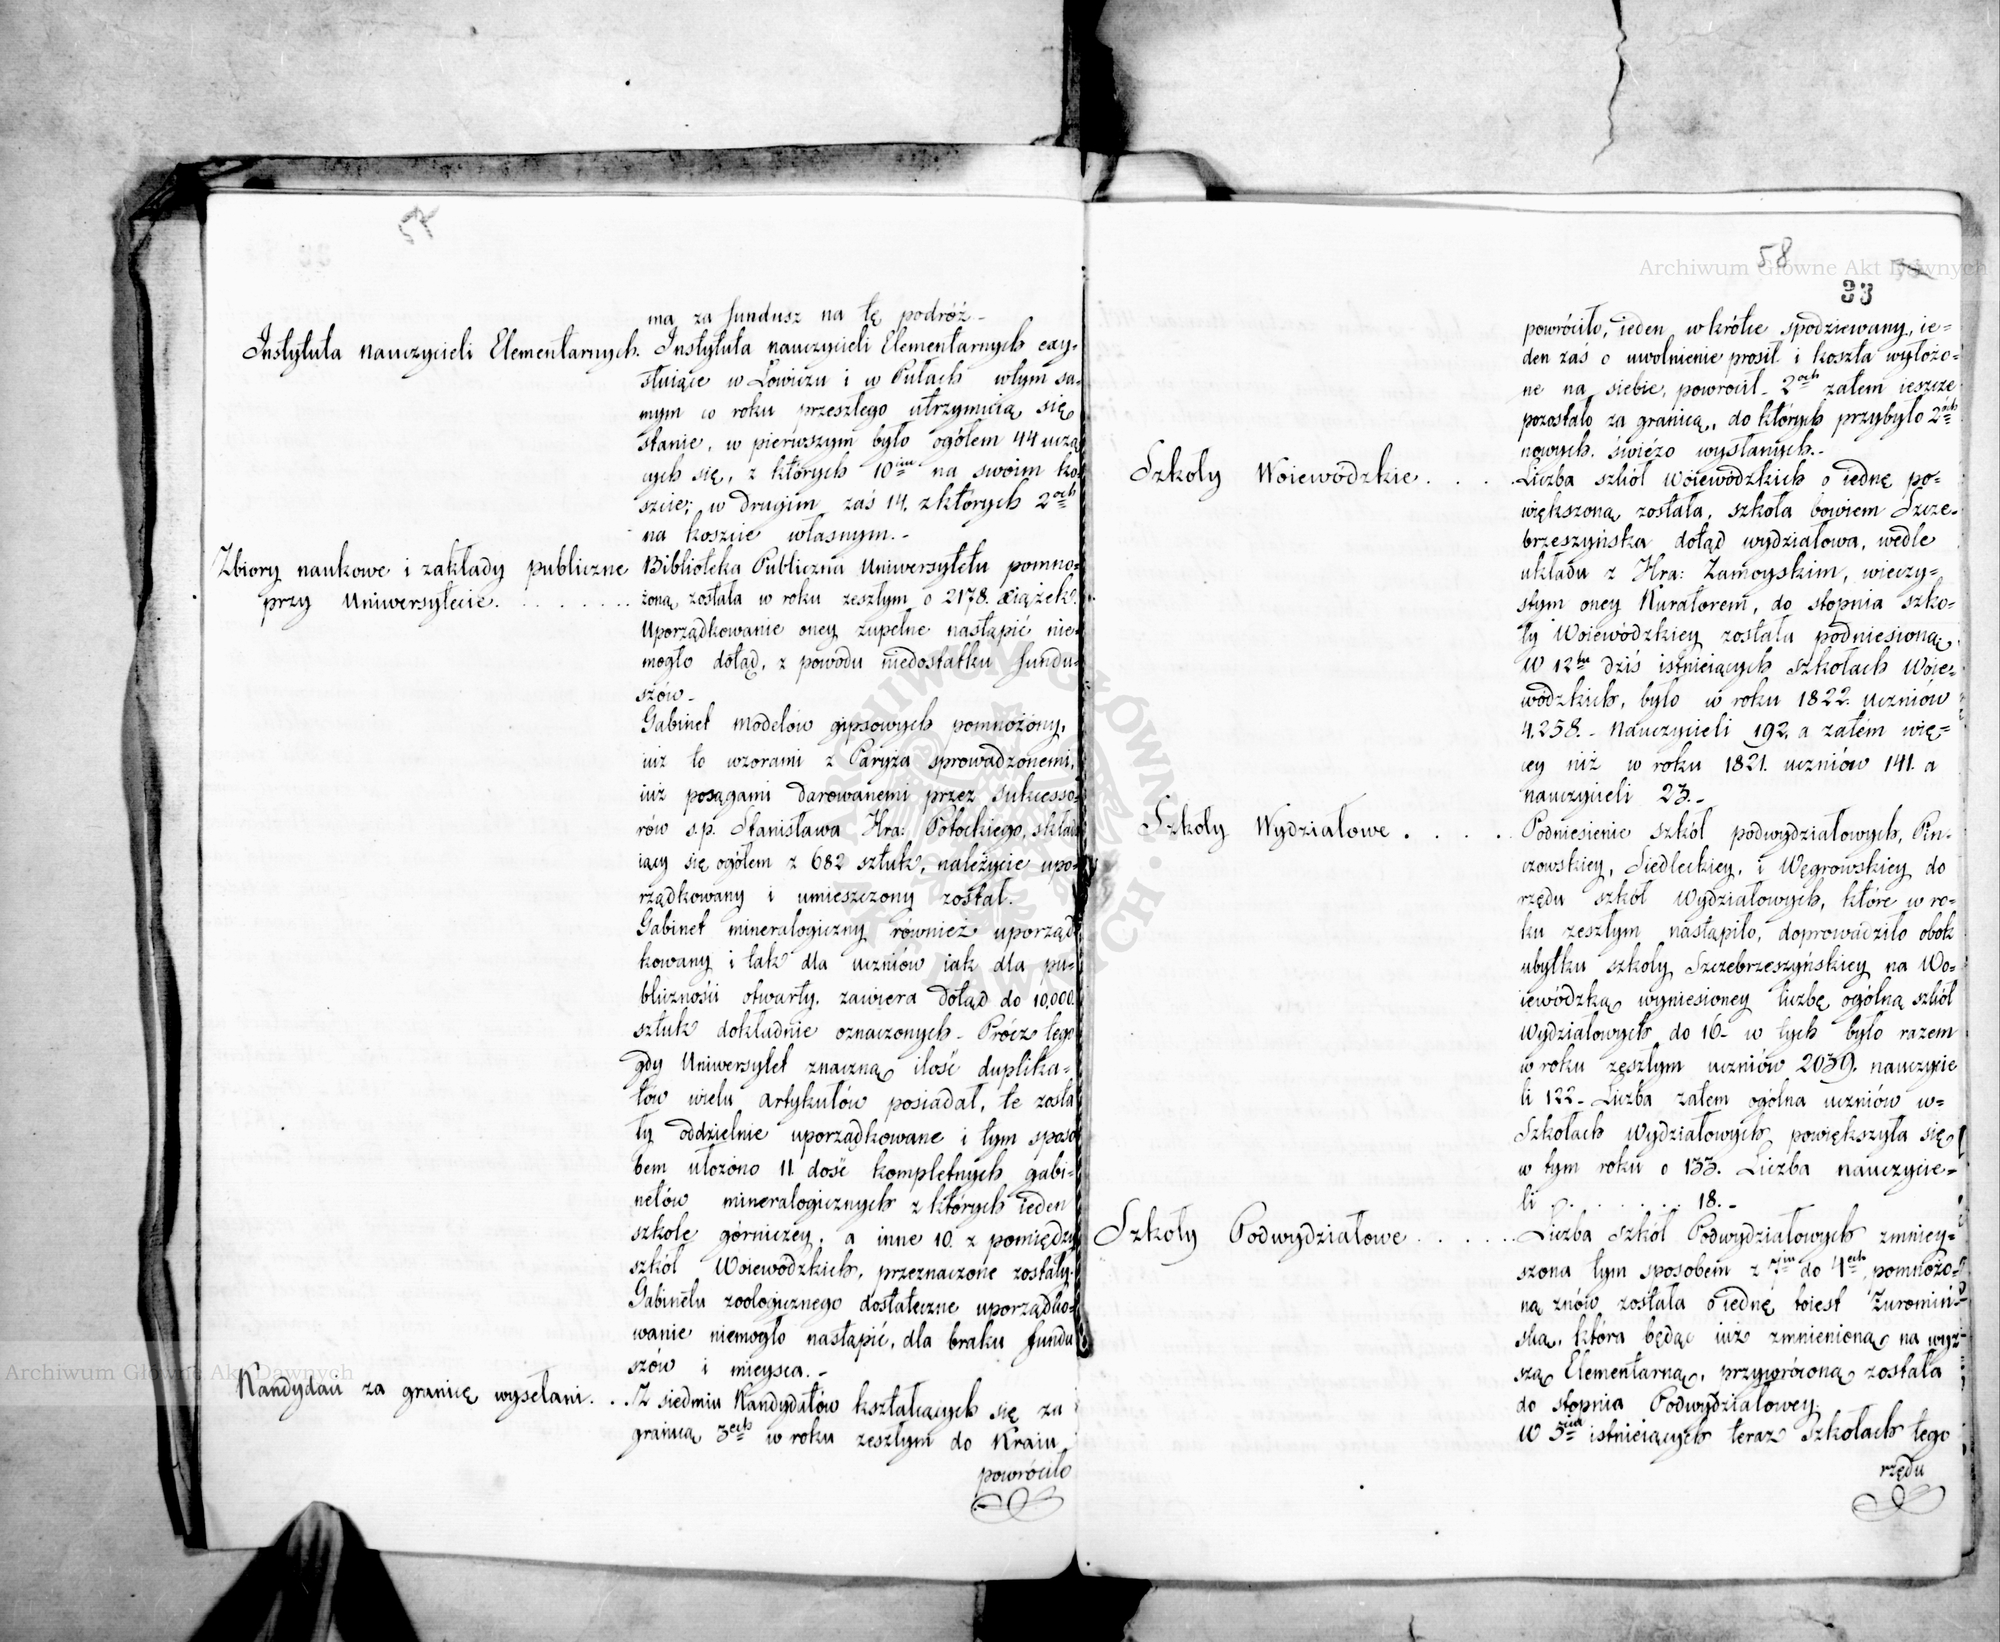 57
ma za fundusz na tę podróż.
Instytuta nauczycieli Elementarnych. Instytuta nauczycieli Elementarnych exy-
stuiące w Łowiczu i w Pułach w tym sa-
mym co roku przeszłego utrzymuią się
stanie, w pierwszym było ogółem 44 uczą
cych się, z których 10ciu na swoim ko-
szcie; w drugim zaś 14, z których 2och
na koszcie własnym.-
Zbiory naukowe i zakłady publiczne Biblioteka Publiczna Uniwersytetu pomno-
przy Uniwersytecie. . . . . . . żoną została w roku zeszłym o 2178. xiążek.
Uporządkowanie oney zupełne nastąpić nie-
mogło dotąd, z powodu niedostatku fundu-
szów.
Gabinet modelów gipsowych pomnożony,
iuż to wzorami z Paryża sprowadzonemi,
iuż posągami darowanemi przez sukcesso-
rów s.p. Stanisława Hra: Potockiego, składa
iący się ogółem z 682 sztuk, należycie upo-
rządkowany i umieszczony został.
Gabinet mineralogiczny również uporząd
kowany i tak dla uczniów iak dla pu-
bliczności otwarty, zawiera dotąd do 10,000.
sztuk dokładnie oznaczonych - Prócz tego
gdy Uniwersytet znaczną ilość duplika-
tów wielu artykułów posiadał, te zosta
ły oddzielnie uporządkowane i tym sposo
bem ułożono 11. dość kompletnych gabi-
netów mineralogicznych z których ieden
szkole górniczey, a inne 10. z pomiędzy
szkół Woiewódzkich, przeznaczone zostały.
Gabinetu zoologicznego dostateczne uporządko-
wanie niemogło nastąpić, dla braku fundu
szów i mieysca.-
Kandydaci za granicę wysełani. . . Z siedmiu Kandydatów kształcących się za
granicą 3ech w roku zeszłym do Kraiu
powróciło
58
33
powróciło, ieden wkrótce spodziewany, ie-
den zaś o uwolnienie prosił i koszta wyłożo-
ne na siebie, powrócił. 2och zatem ieszcze
pozostało za granicą, do których przybyło 2ch
nowych, świeżo wysłanych.-
Szkoły Woiewódzkie. . . . Liczba szkół Woiewódzkich o iednę po-
większoną została, szkoła bowiem Szcze-
brzeszyńska dotąd wydziałowa, wedle
układu z Hra: Zamoyskim, wieczy-
stym oney Kuratorem, do stopnia szko-
ły Woiewódzkiey została podniesioną
W 12tu dziś istnieiących szkołach Woie-
wódzkich, było w roku 1822. uczniów
4,258. - Nauczycieli 192, a zatem wię-
cey niż w roku 1821. uczniów 141. a
nauczycieli 23.-
Szkoły Wydziałowe . . . . Podniesienie szkół podwydziałowych, Piń-
czowskiey, Siedleckiey, i Węgrowskiey do
rzędu szkół Wydziałowych, które w ro-
ku zeszłym nastąpiło, doprowadziło obok
ubytku szkoły Szczebrzeszyńskiey na Wo-
iewódzką wyniesioney liczbę ogólną szkół
Wydziałowych do 16- w tych było razem
w roku zeszłym uczniów 2039. nauczycie
li 122- Liczba zatem ogólna uczniów w-
Szkołach Wydziałowych powiększyła się
w tym roku o 133. Liczba nauczycie-
li . . . . . . . 18.-
Szkoły Podwydziałowe . . . . . . Liczba szkół Podwydziałowych zmniey-
szona tym sposobem z 7iu do 4ech, pomnożo-
ną znów została o iednę toiest Żuromiń-
ską, która będąc iuż zmnienioną na wyż-
szą Elementarną, przywróconą została
do stopnia Podwydziałowey.
W 5ciu istnieiących teraz Szkołach tego
rzędu
Archiwum Główne Akt Dawnych
Archiwum Główne Akt Dawnych